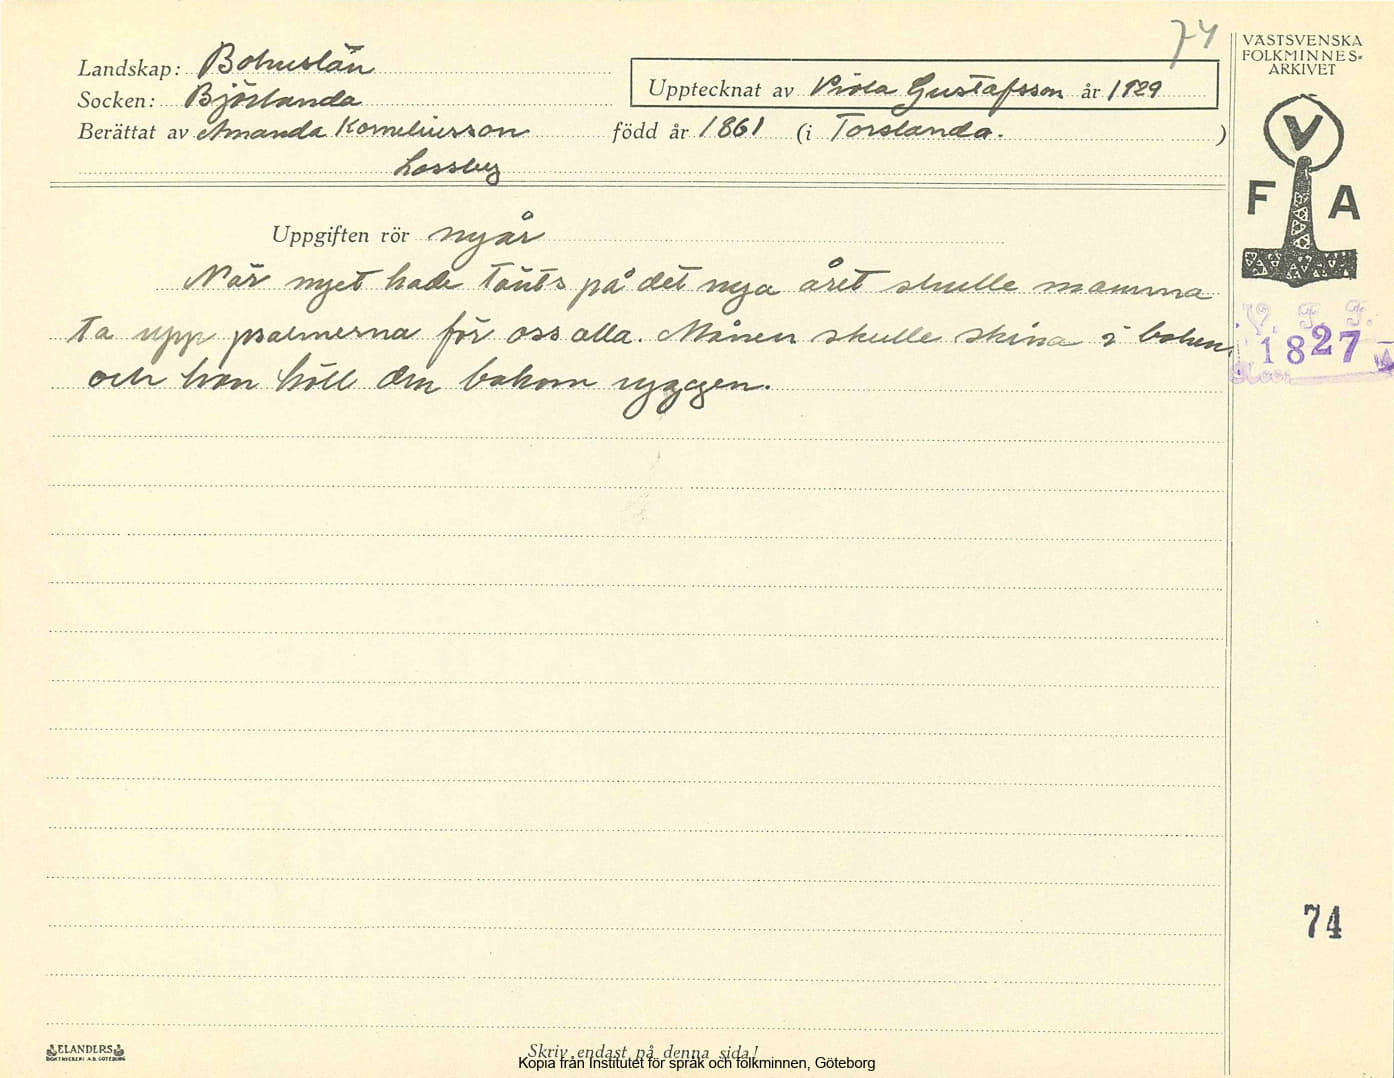 74
VÄSTSVENSKA
FOLKMINNES-
ARKIVET
Landskap: Bohuslän
Socken: Björlanda
Upptecknat av Viola Gustafsson år 1929
Berättat av Amanda Korneliusson född år 1861 (i Torslanda. )
Lossby
V
F A
Uppgiften rör nyår
När nyet hade tänts på det nya året skulle mamma
ta upp psalmerna för oss alla. Månen skulle skina i boken,
och hon höll den bakom ryggen.
V. F. F.
1827
74
ELANDERS
BOKTRYCKERI A.B. GÖTEBORG
Skriv endast på denna sida!
Kopia från Institutet för språk och folkminnen, Göteborg